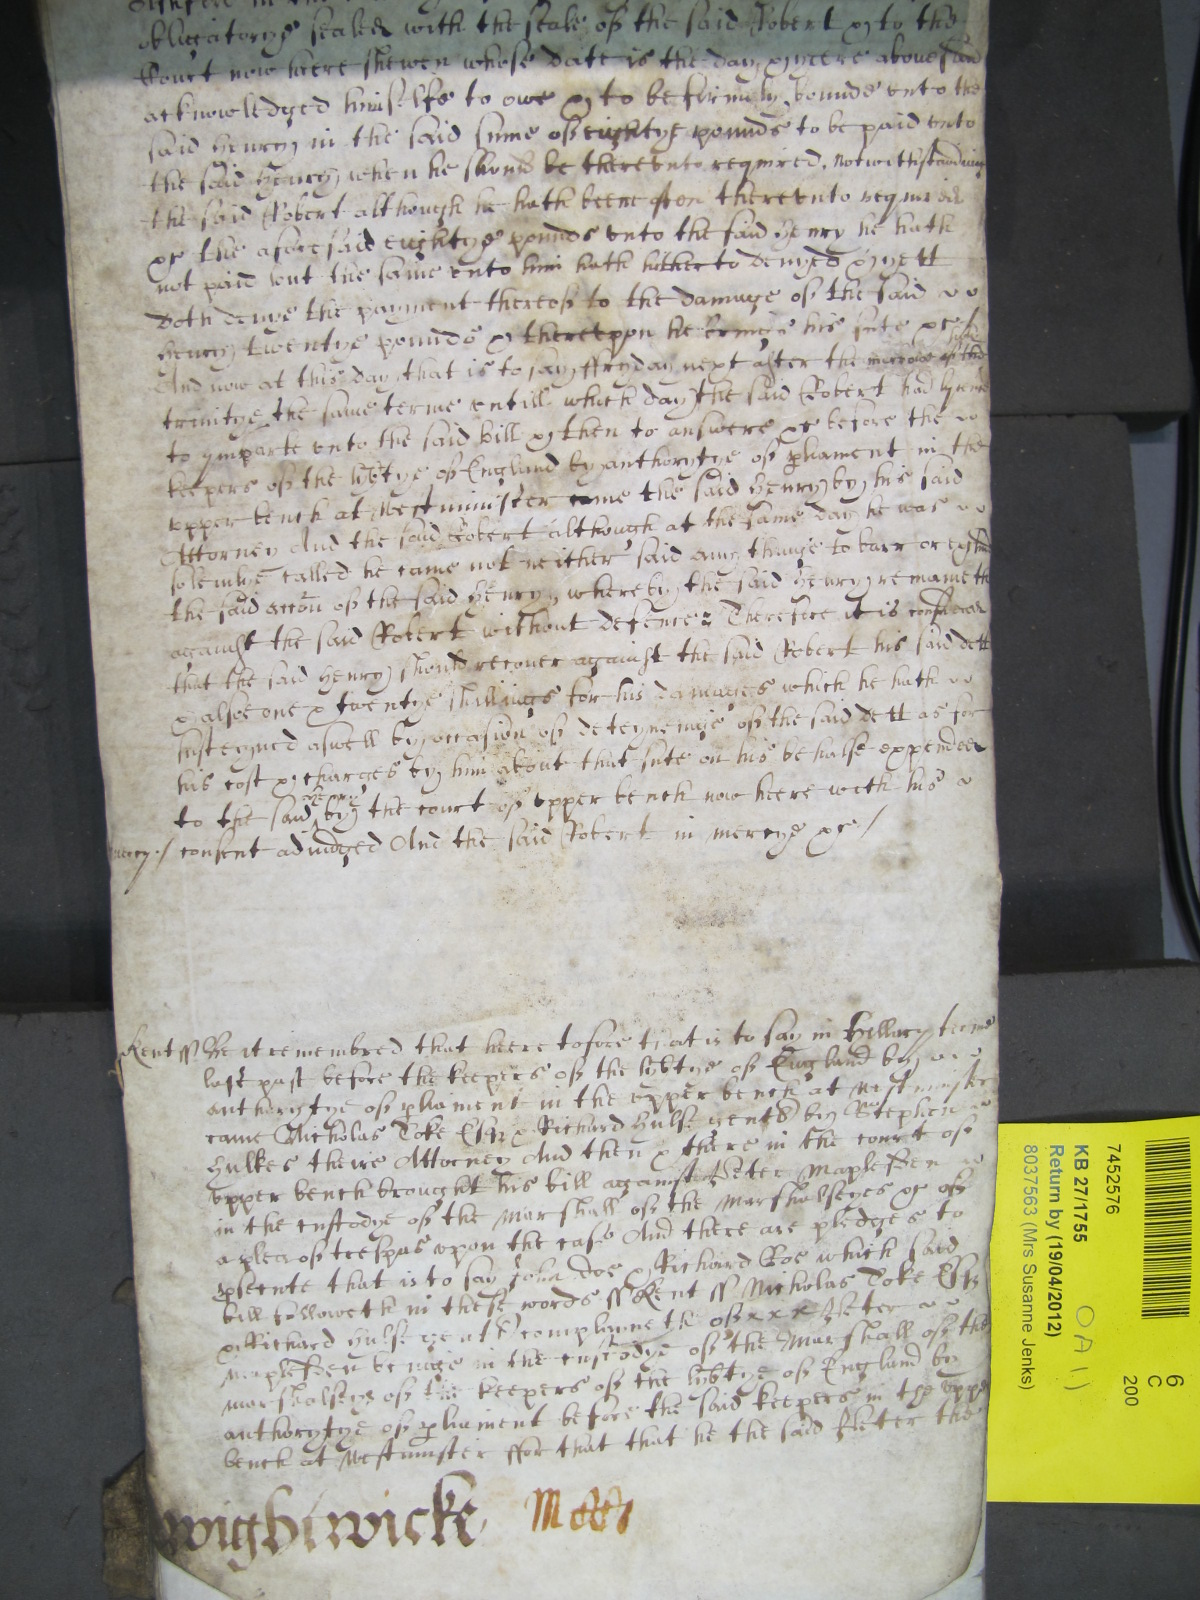 obligatorye sealed with the seale of the said Robert & to the
Court now heere shewen whose date is the day & yeere abovesaid
acknowledged himselfe to owe & to be firmely bounde unto the
said Henry in the said sume of eightye pounds to be paid unto
the said Henry when he should be thereunto required, notwithstandinge
the said Robert although he hath beene often thereunto required
&c the aforesaid eightye pounds unto the said Henry he hath
not paid but the same unto him hath hitherto denyed & yett
doth denye the payment thereof to the damage of the said
Henry twentye pounds & thereupon he bringes his sute &c /
And now at this day that is to say ffryday next after the morrow of the holy
trinitye the same terme untill which day the said Robert had lycence
to ymparle unto the said bill & then to answere &c before the
keepers of the libtye of England by authorytye of pliament in the
upper bench at Westminister came the said Henry by his said
Attorney And the said Robert although at the same day he was
solemlye called he came not neither said any thinge to barr or
the said accon of the said Henry whereby the said Henry remaineth
against the said Robert without defence Therefore it is considered
that the said Henry should recover against the said Robert his said dett
& alsoe one & twentye shillings for his damages which he hath
susteyned aswell by occasion of deteyneinge of the said dett as for
his cost & charges by him about that sute on his behalfe expended
to the said Henry by the court of upper bench now heere with his
mercy / consent adiudged And the said Robert in mercye &c /
Kent ss Be it remembred that heere tofore that is to say in Hillary terme
last past before the keepers of the libtye of England by
authorytye of pliament in the upper bench at Westminster
came Nicholas Toke Esqr & Richard Hulse gents by Stephen
Hulkes theire Attorney And then & there in the court of
upper bench brought his bill against Peter Maplesden
in the custodye of the Marshall of the Marshalseyes &c of
a plea of trespas upon the case And there are pledges to
psecute that is to say John Doe & Richard Roe which said
bill followeth in these words ss Kent ss Nicholas Toke Esqr
& Richard Hulse gent complayneth of xxx Peter
Maplesden beinge in the custodye of the Marshall of the
marshalsey of the keepers of the libtye of England by
authorytye of pliament before the said keepers in the upper
bench at Westminster ffor that that he the said Peter the
Wightwicke
7452576
KB 27/1755
Return by (19/04/2012)
8037563 (Mrs Susanne Jenks)
6
C
200